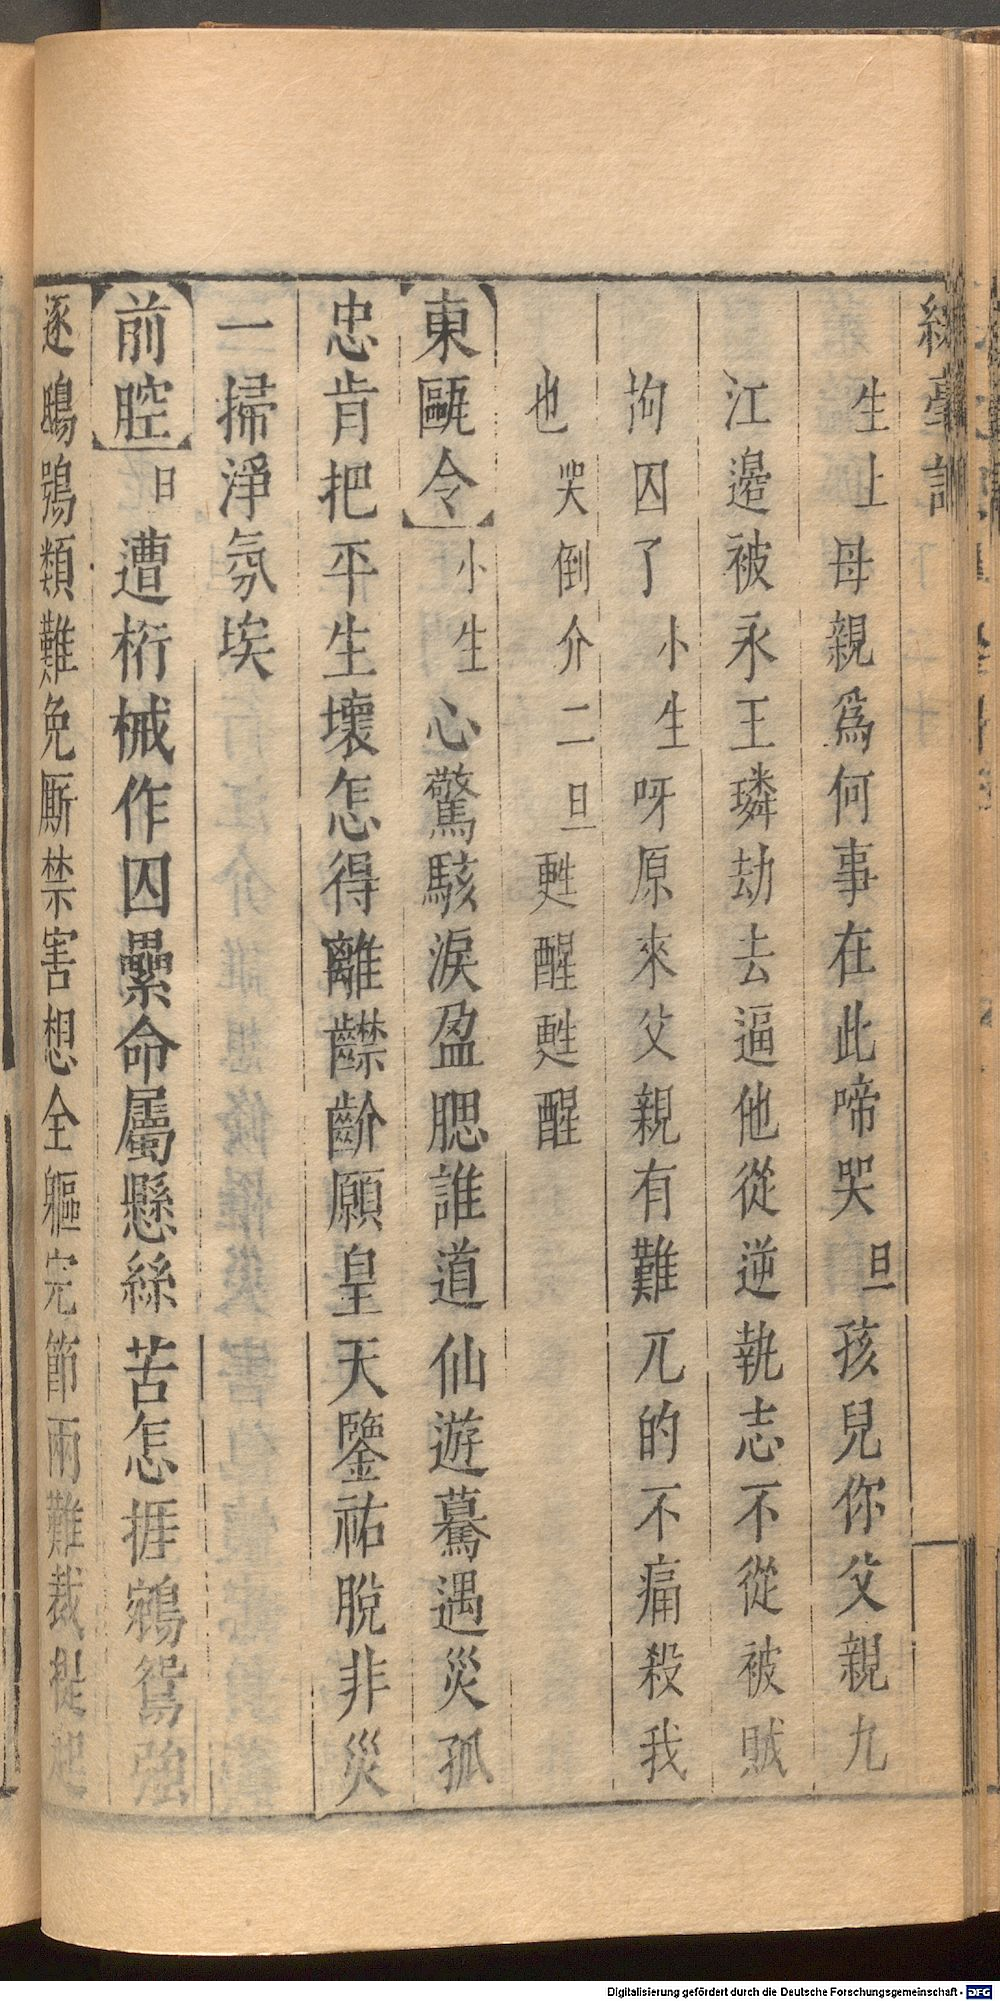 綵毫記
生上母親爲何事在此啼哭旦孩兒你父親九
江邊被永王璘劫去逼他從逆執志不從被賊
拘囚了小生呀原來父親有難兀的不痛殺我
也哭倒介二旦甦醒甦醒
【東甌令】小生心驚駭淚盈腮誰道仙遊驀遇災孤
忠肯把平生壞怎得離齽齘願皇天鑒祐脫非災
一掃淨氛埃
【前腔】旦遭桁械作囚纍命屬懸絲苦怎捱鵷鴛強
逐鴟鴞類難免厮禁害想全軀完節兩難裁提起
Digitalisierung gefördert durch die Deutsche Forschungsgemeinschaft - DFG